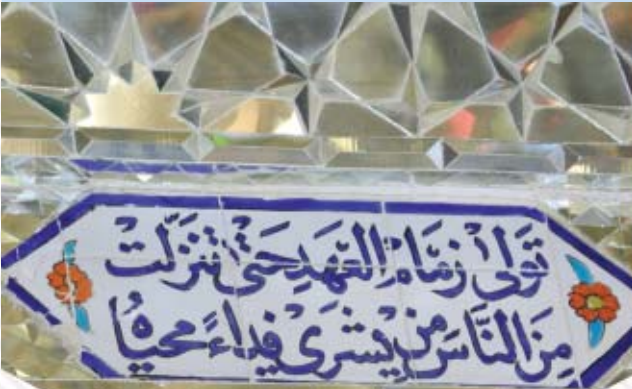 تَوَلىٰ زمَامُ العَهدِ حَتىٰ تَنَزَّلَت
مِنَ النَّاسِ مَن يَشرى فِداءً مُحيَّاهُ